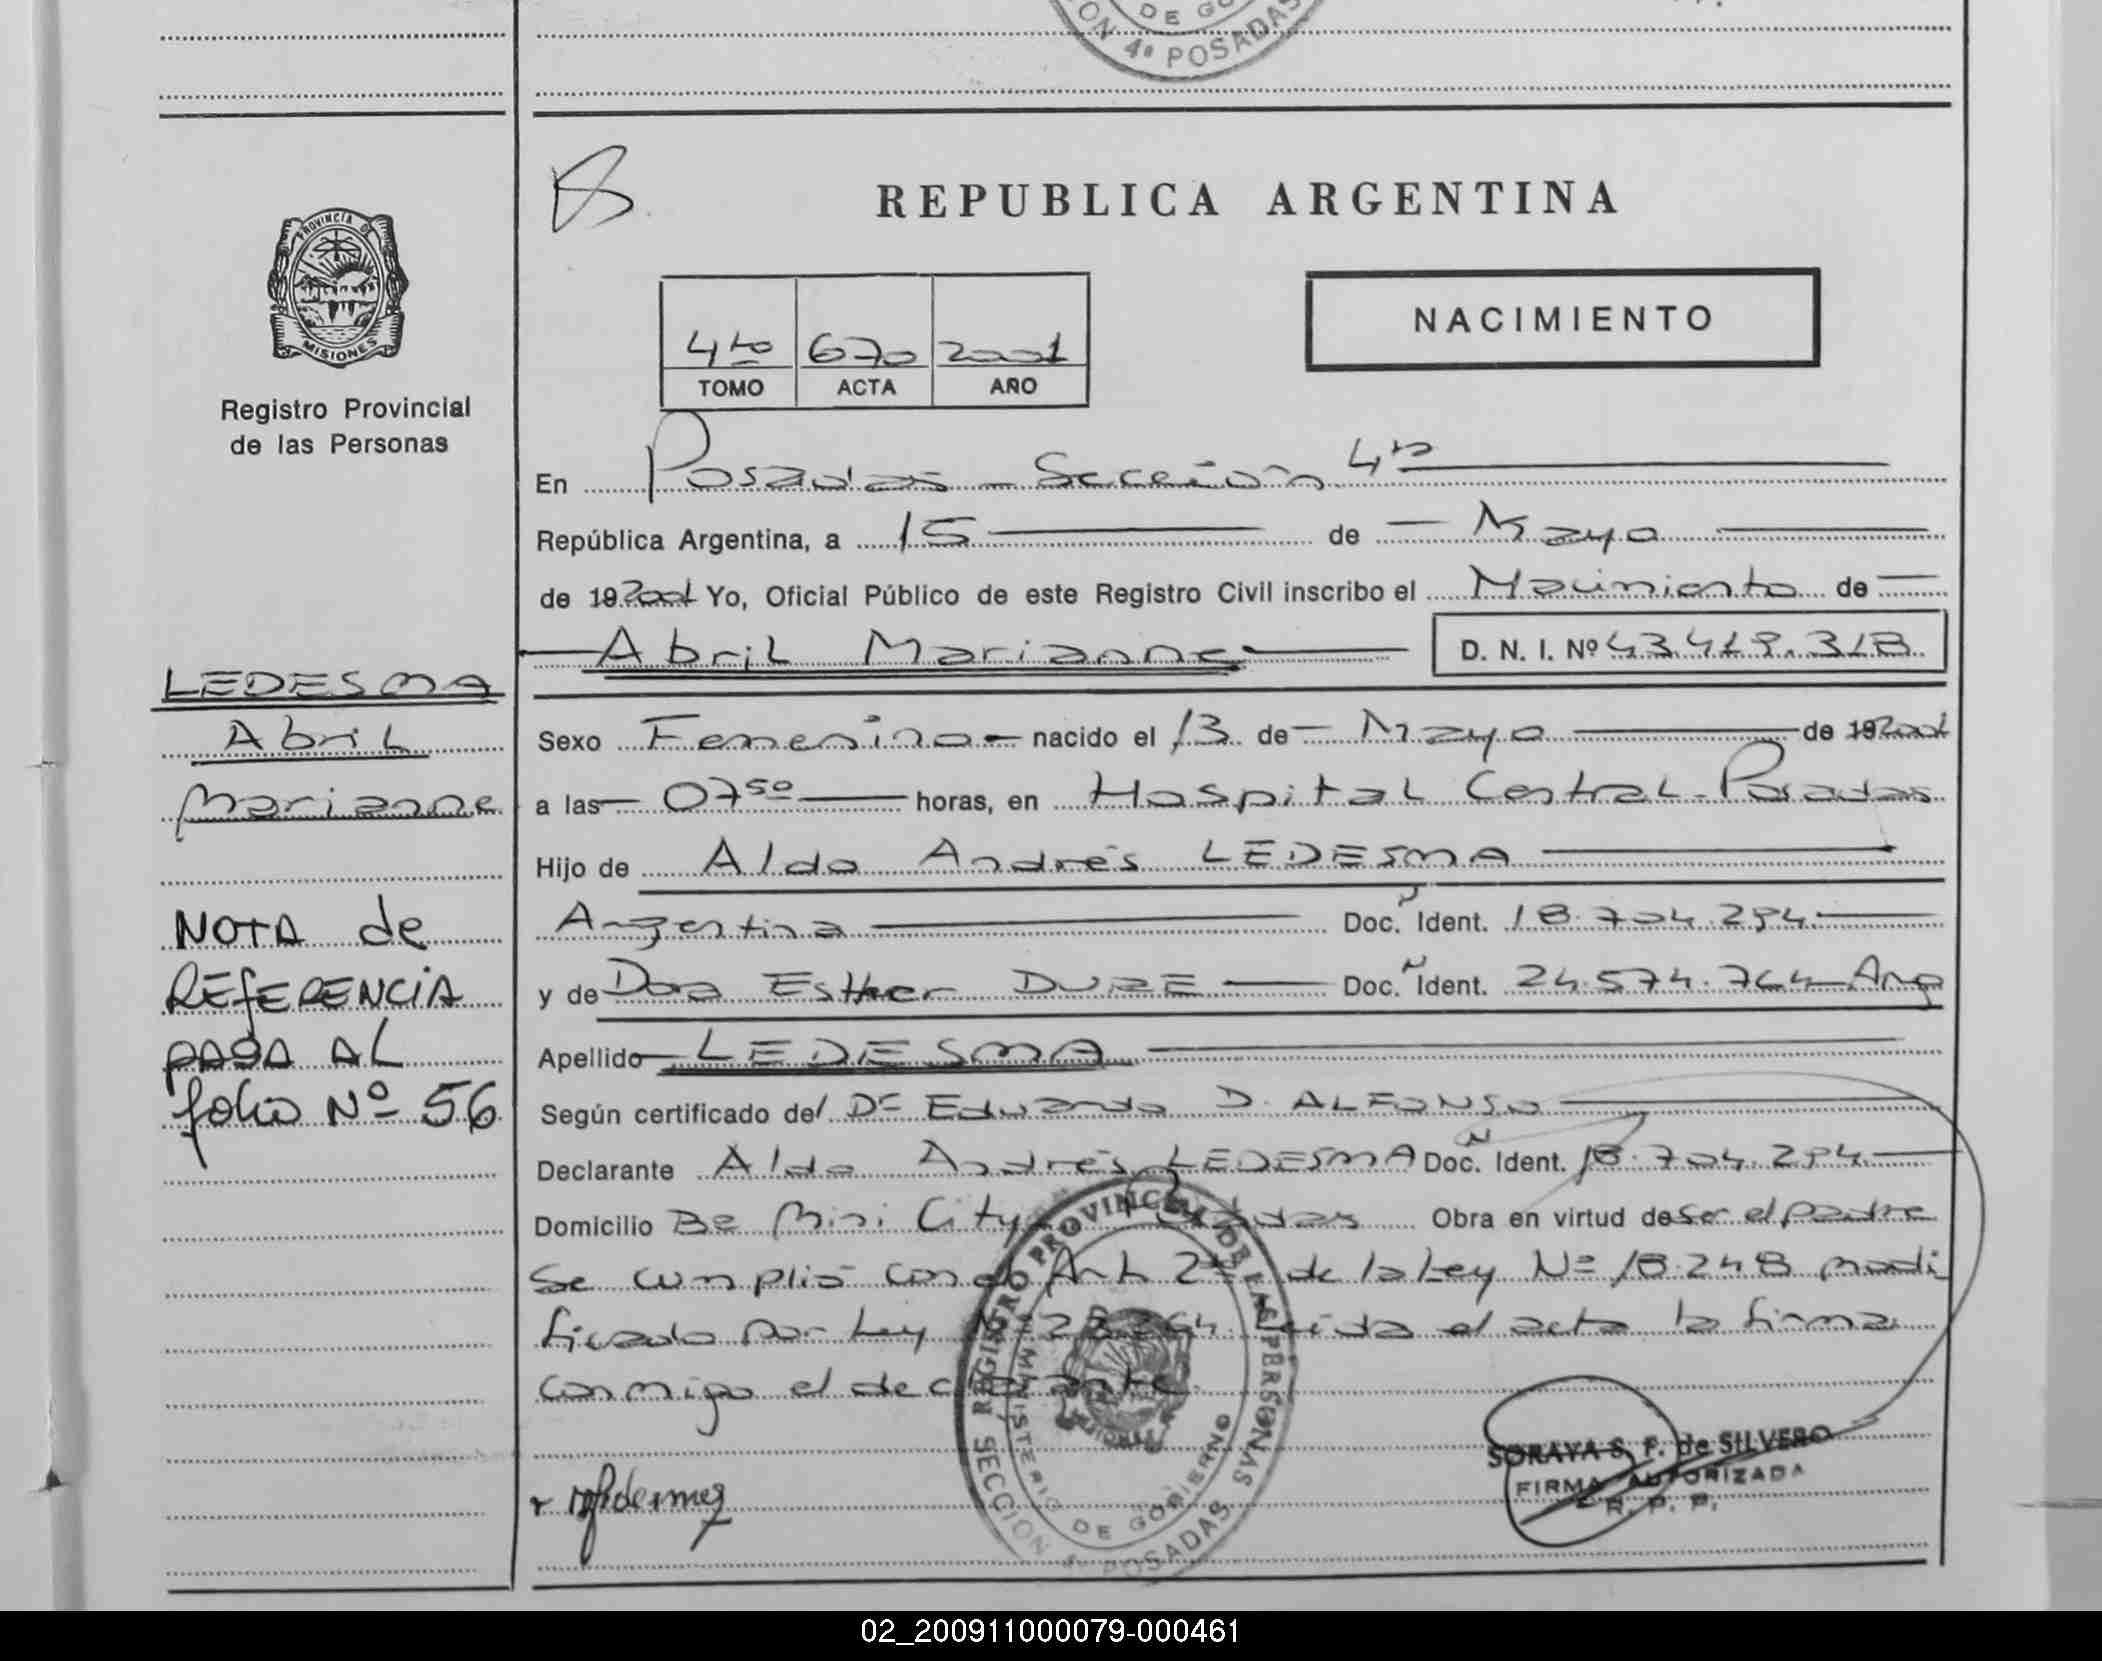 DE GO
ON 4ª POSADAS
PROVINCIA DE
MISIONES
Registro Provincial
de las Personas
REPUBLICA ARGENTINA
NACIMIENTO
4to 670 2001
TOMO ACTA AÑO
En Posadas - Sección 4ta
República Argentina, a 15 de Mayo
de 19 2001 Yo, Oficial Público de este Registro Civil inscribo el Nacimiento de
Abril Marianne D. N. I. Nº 43.419.318
LEDESMA
Abril
Marianne
Sexo Femenino nacido el 13 de Mayo de 19 2001
a las 07 50 horas, en Hospital Central - Posadas
Hijo de Aldo Andrés LEDESMA
Argentina Doc. Ident. 18.704.294
y de Dora Esther DURE Doc. Ident. 24.574.764 Arg
Apellido LEDESMA
Según certificado del Dr Eduardo D. ALFONSO
Declarante Aldo Andrés LEDESMA Doc. Ident. 18.704.294
Domicilio Be Mini City Posadas Obra en virtud de ser el padre
Se cumplió con el Art 2do de la Ley Nº 18.248 modi
ficado por Ley Nº 23.264. Leída el acta la firma
conmigo el declarante.
NOTA de
REFERENCIA
PASA AL
folio Nº 56
REGISTRO PROVINCIAL DE LAS PERSONAS
MINISTERIO DE GOBIERNO
SECCION 4ª POSADAS
SORAYA S. F. de SILVERO
FIRMA AUTORIZADA
R. P. P.
02_200911000079-000461